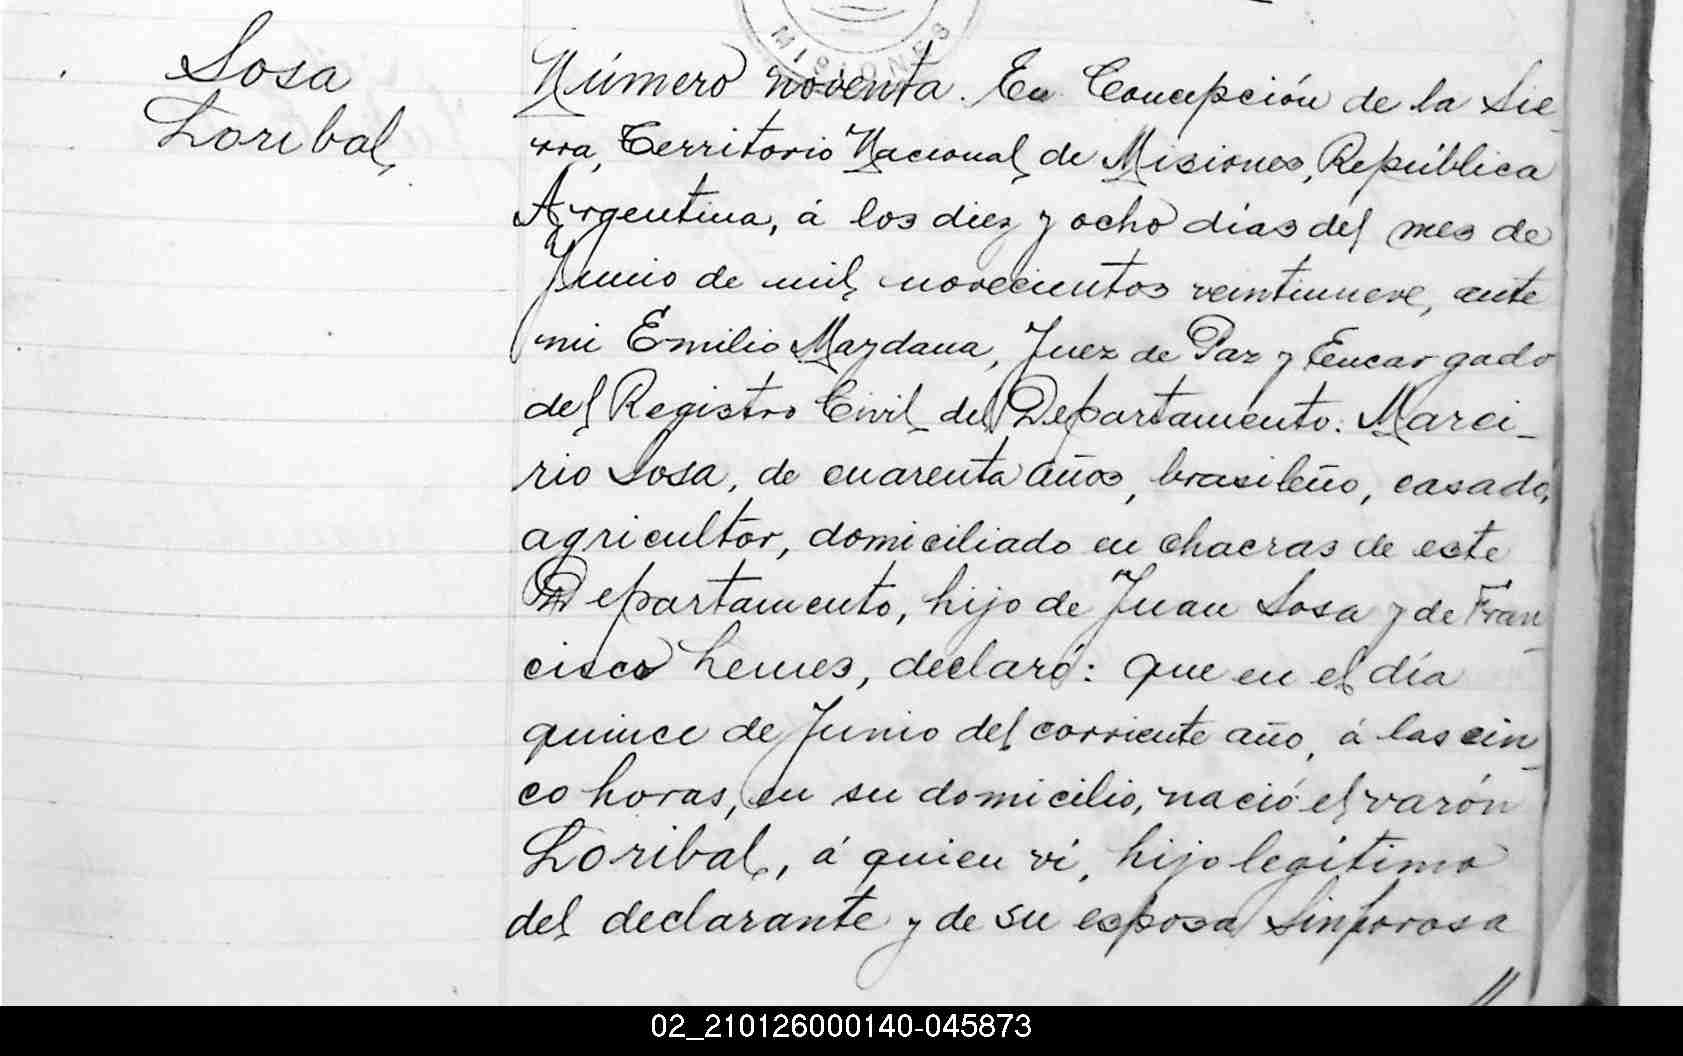 Sosa
Loribal
MISIONES
Número noventa. En Concepción de la Sie-
rra, Territorio Nacional de Misiones, República
Argentina, á los diez y ocho días del mes de
Junio de mil novecientos veintinueve, ante
mi Emilio Maydana, Juez de Paz y Encargado
del Registro Civil del Departamento: Marci-
rio Sosa, de cuarenta años, brasileño, casado,
agricultor, domiciliado en chacras de este
Departamento, hijo de Juan Sosa y de Fran-
cisca Lemes, declaró: Que en el día
quince de Junio del corriente año, á las cin-
co horas, en su domicilio, nació el varón
Loribal, á quien ví, hijo legítimo
del declarante y de su esposa Sinforosa
//
02_210126000140-045873